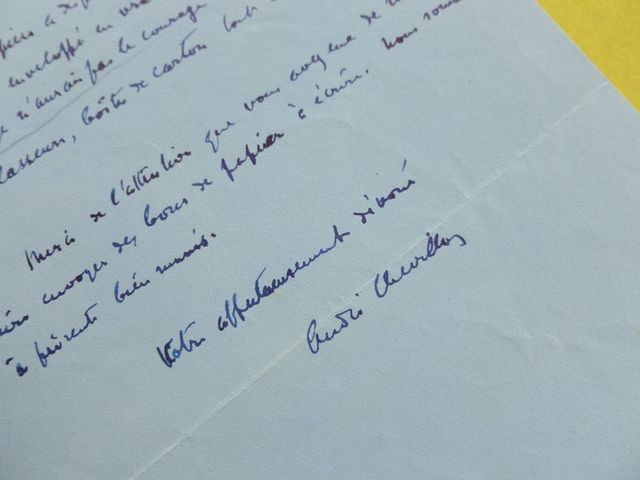 enveloppé en
n'aurais pas le courage
classeurs, boîte de carton tout
Merci de l'attention que vous avez eue de
envoyer des bouts de papier à écrire. Nous
à présent bien munis.
Votre affectueusement dévoué
André Chevrillon